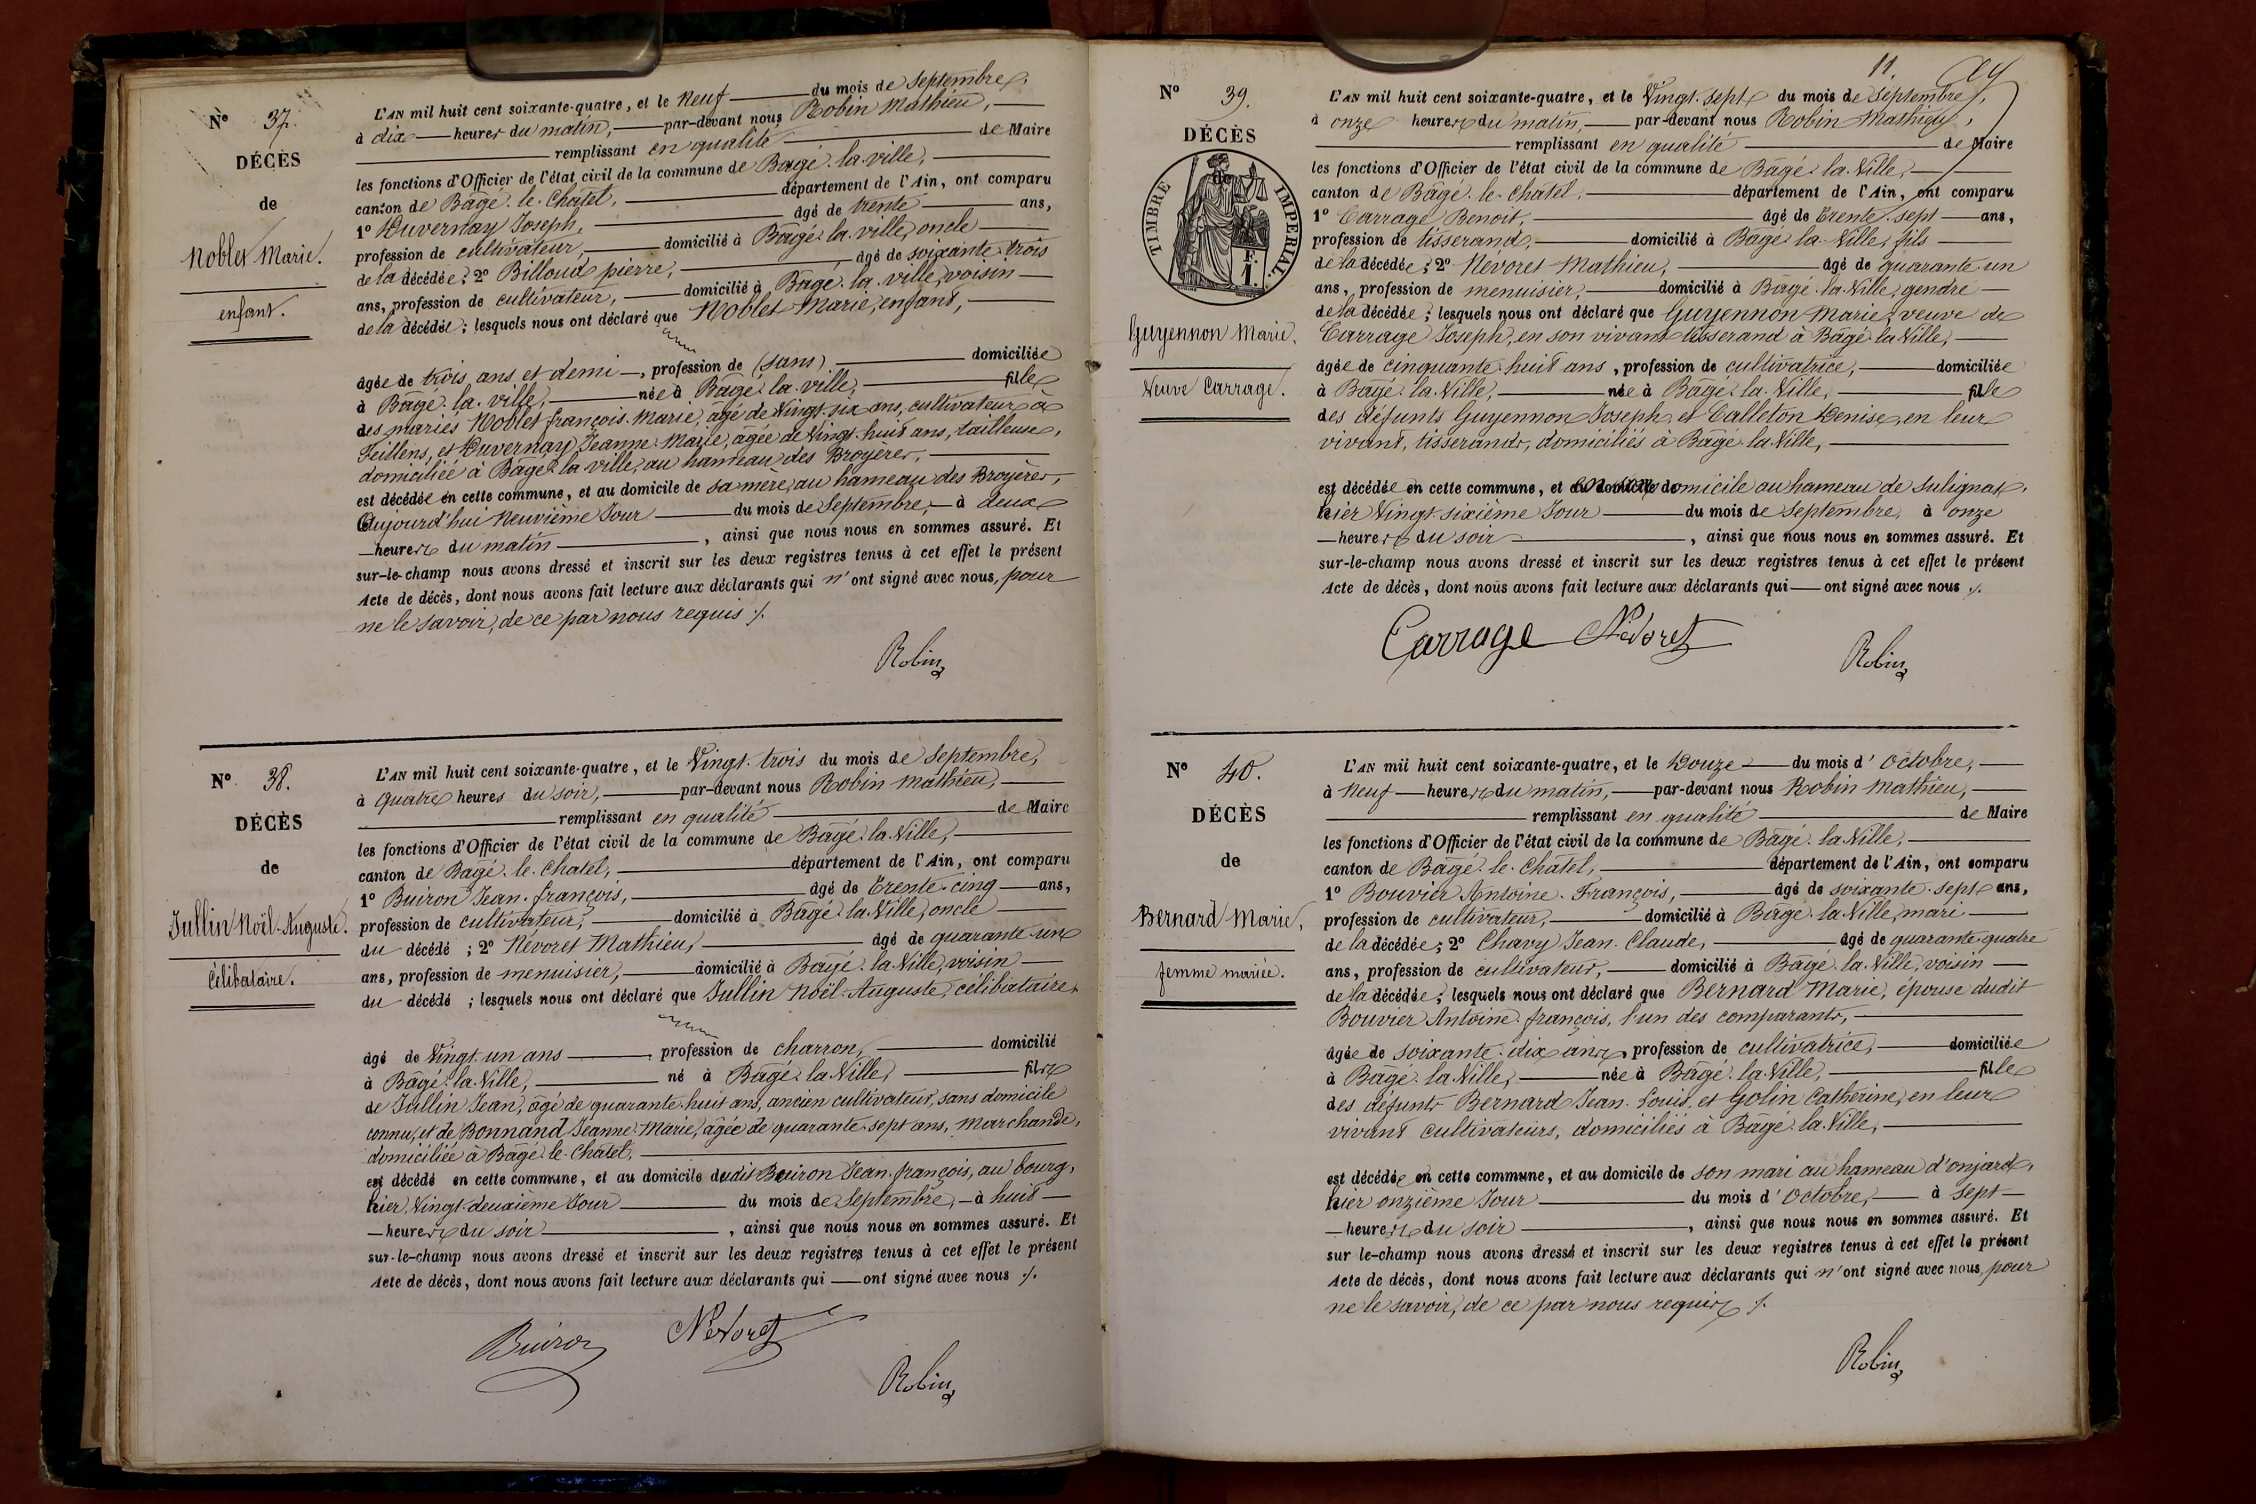 N° 37.
DÉCÈS
de
Noblet Marie.
enfant.
L'AN mil huit cent soixante-quatre, et le Neuf du mois de Septembre,
à dix heures du matin, par-devant nous Robin Mathieu,
remplissant en qualité de Maire
les fonctions d'Officier de l'état civil de la commune de Bâgé-la-ville,
canton de Bâgé-le-Châtel, département de l'Ain, ont comparu
1° Duvernay Joseph, âgé de trente ans,
profession de cultivateur, domicilié à Bâgé-la-ville, oncle
de la décédée; 2° Billoud pierre, âgé de soixante-trois
ans, profession de cultivateur, domicilié à Bâgé-la-ville, voisin
de la décédée; lesquels nous ont déclaré que Noblet Marie, enfant,
âgée de trois ans et demi, profession de (sans) domiciliée
à Bâgé-la-ville, née à Bâgé-la-ville, fille
des mariés Noblet françois-Marie, âgé de Vingt-six ans, cultivateur à
Feillens, et Duvernay Jeanne-Marie, âgée de Vingt-huit ans, tailleuse,
domiciliée à Bâgé-la-ville, au hameau des Broyères,
est décédée en cette commune, et au domicile de sa mère, au hameau des Broyères,
Aujourd'hui Neuvième Jour du mois de Septembre, à deux
heures du matin, ainsi que nous nous en sommes assuré. Et
sur-le-champ nous avons dressé et inscrit sur les deux registres tenus à cet effet le présent
Acte de décès, dont nous avons fait lecture aux déclarants qui n'ont signé avec nous, pour
ne le savoir, de ce par nous requis ./.
Robin
N° 38.
DÉCÈS
de
Jullin Noël-Auguste.
Célibataire.
L'AN mil huit cent soixante-quatre, et le Vingt-trois du mois de Septembre,
à Quatre heures du soir, par-devant nous Robin Mathieu,
remplissant en qualité de Maire
les fonctions d'Officier de l'état civil de la commune de Bâgé-la-Ville,
canton de Bâgé-le-Chatel, département de l'Ain, ont comparu
1° Buiron Jean-françois, âgé de Trente-cinq ans,
profession de cultivateur, domicilié à Bâgé-la-Ville, oncle
du décédé; 2° Névoret Mathieu, âgé de quarante-un
ans, profession de menuisier, domicilié à Bâgé-la-Ville, voisin
du décédé; lesquels nous ont déclaré que Jullin Noël-Auguste, célibataire,
âgé de Vingt-un ans, profession de charron, domicilié
à Bâgé-la-Ville, né à Bâgé-la-Ville, fils
de Jullin Jean, âgé de quarante-huit ans, ancien cultivateur, sans domicile
connu, et de Bonnand Jeanne-Marie, âgée de quarante-sept ans, Marchande,
domiciliée à Bâgé-le-Châtel,
est décédé en cette commune, et au domicile dudit Buiron Jean-françois, au bourg,
hier Vingt-deuxième Jour du mois de Septembre, à huit
heures du soir, ainsi que nous nous en sommes assuré. Et
sur-le-champ nous avons dressé et inscrit sur les deux registres tenus à cet effet le présent
Acte de décès, dont nous avons fait lecture aux déclarants qui ont signé avec nous ./.
Buiron Névoret
Robin
11.
N° 39.
DÉCÈS
TIMBRE IMPÉRIAL.
1 F.
Guyennon Marie.
Veuve Carrage.
L'AN mil huit cent soixante-quatre, et le Vingt-sept du mois de Septembre,
à onze heures du matin, par-devant nous Robin Mathieu,
remplissant en qualité de Maire
les fonctions d'Officier de l'état civil de la commune de Bâgé-la-Ville,
canton de Bâgé-le-Chatel, département de l'Ain, ont comparu
1° Carrage Benoit, âgé de Trente-sept ans,
profession de tisserand, domicilié à Bâgé-la-Ville, fils
de la décédée; 2° Névoret Mathieu, âgé de quarante-un
ans, profession de menuisier, domicilié à Bâgé-la-Ville, gendre
de la décédée; lesquels nous ont déclaré que Guyennon Marie, veuve de
Carrage Joseph, en son vivant tisserand à Bâgé-la-Ville,
âgée de cinquante-huit ans, profession de cultivatrice, domiciliée
à Bâgé-la-Ville, née à Bâgé-la-Ville, fille
des défunts Guyennon Joseph, et Calleton Denise, en leur
vivant, tisserands, domiciliés à Bâgé-la-Ville,
est décédée en cette commune, et en son domicile au hameau de Sulignat,
hier Vingt-sixième Jour du mois de Septembre, à onze
heures du soir, ainsi que nous nous en sommes assuré. Et
sur-le-champ nous avons dressé et inscrit sur les deux registres tenus à cet effet le présent
Acte de décès, dont nous avons fait lecture aux déclarants qui ont signé avec nous ./.
Carrage Névoret
Robin
N° 40.
DÉCÈS
de
Bernard Marie,
femme mariée.
L'AN mil huit cent soixante-quatre, et le Douze du mois d'Octobre,
à Neuf heures du matin, par-devant nous Robin Mathieu,
remplissant en qualité de Maire
les fonctions d'Officier de l'état civil de la commune de Bâgé-la-Ville,
canton de Bâgé-le-Châtel, département de l'Ain, ont comparu
1° Bouvier Antoine-François, âgé de soixante-sept ans,
profession de cultivateur, domicilié à Bâgé-la-Ville, mari
de la décédée; 2° Chavy Jean-Claude, âgé de quarante-quatre
ans, profession de cultivateur, domicilié à Bâgé-la-Ville, voisin
de la décédée; lesquels nous ont déclaré que Bernard Marie, épouse dudit
Bouvier Antoine-françois, l'un des comparants,
âgée de soixante-dix ans, profession de cultivatrice, domiciliée
à Bâgé-la-Ville, née à Bâgé-la-Ville, fille
des défunts Bernard Jean-Louis, et Golin Catherine, en leur
vivant cultivateurs, domiciliés à Bâgé-la-Ville,
est décédée en cette commune, et au domicile de son mari au hameau d'onjard,
hier onzième Jour du mois d'Octobre, à sept
heures du soir, ainsi que nous nous en sommes assuré. Et
sur le-champ nous avons dressé et inscrit sur les deux registres tenus à cet effet le présent
Acte de décès, dont nous avons fait lecture aux déclarants qui n'ont signé avec nous, pour
ne le savoir, de ce par nous requis ./.
Robin